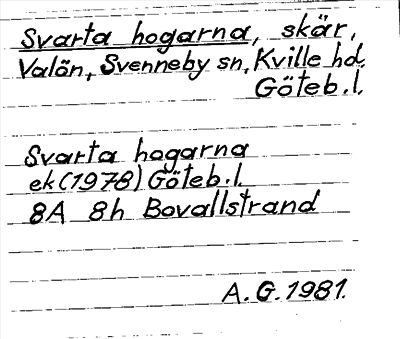 Svarta hogarna, skär,
Valön, Svenneby sn, Kville hd,
Göteb. l.
Svarta hogarna
ek (1978) Göteb. l.
8A 8h Bovallstrand
A. G. 1981.